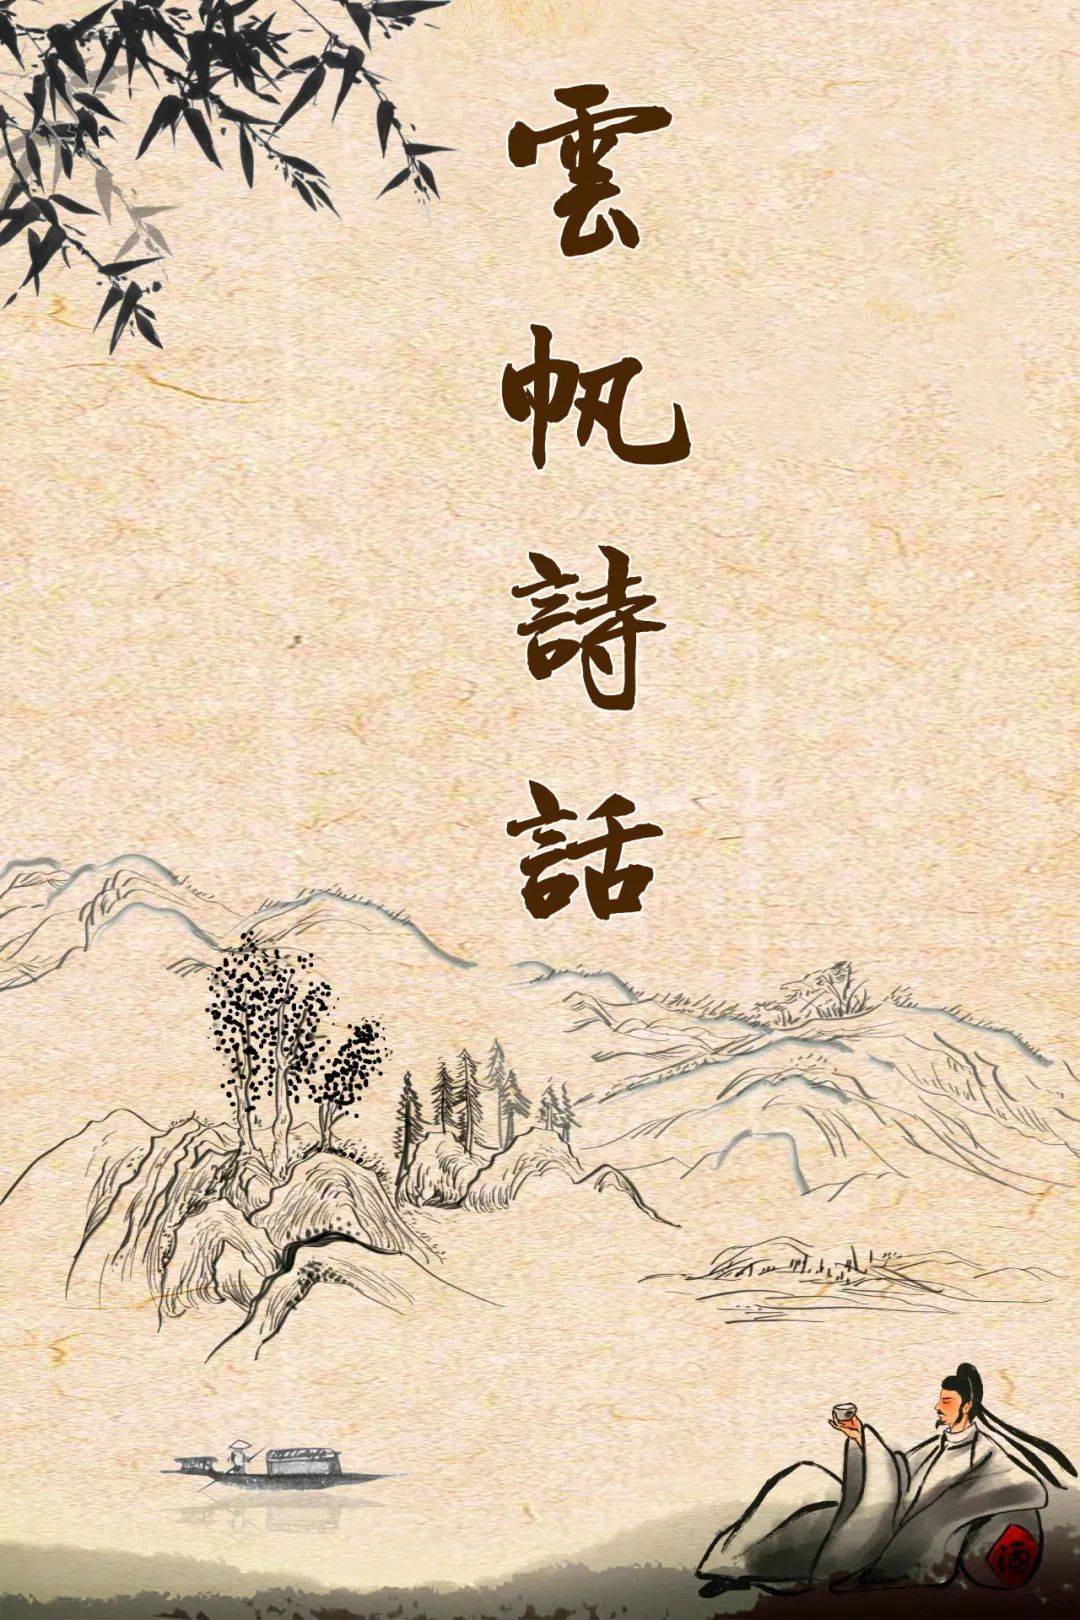 雲帆詩話
酒